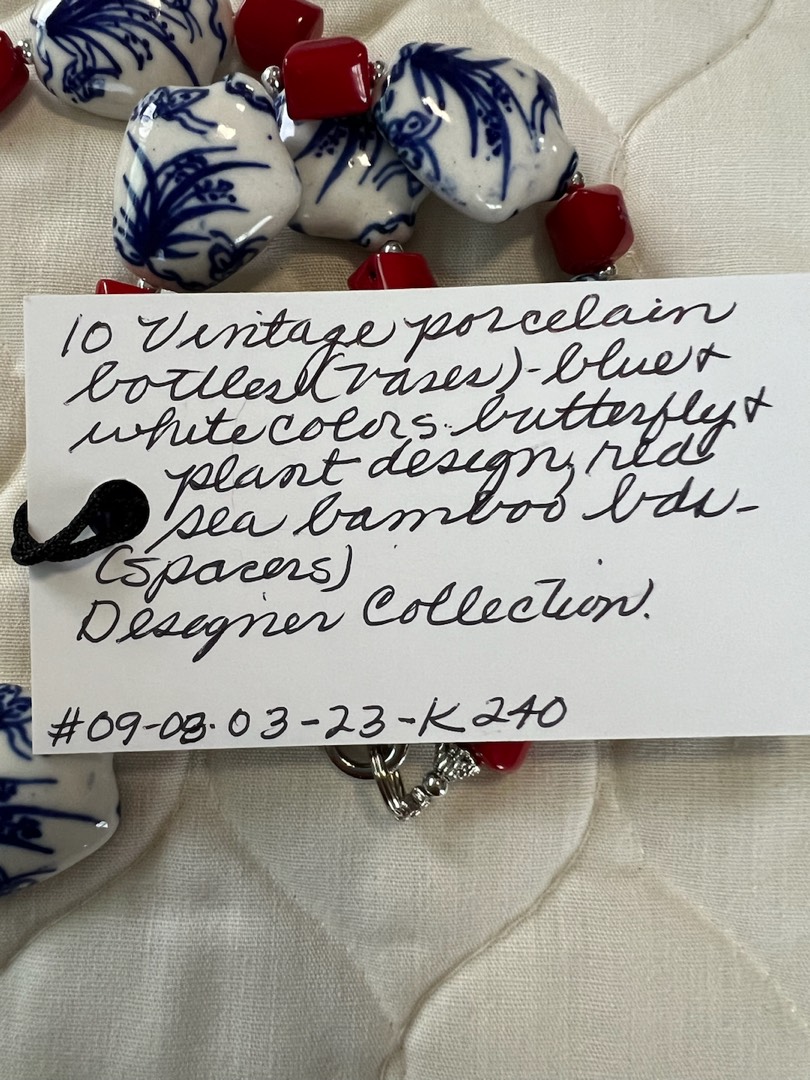 10 Vintage porcelain
bottles (vases)-blue &
white colors. butterfly &
plant design, red
sea bamboo bds-
(spacers)
Designer Collection.
#09-08-03-23-K240